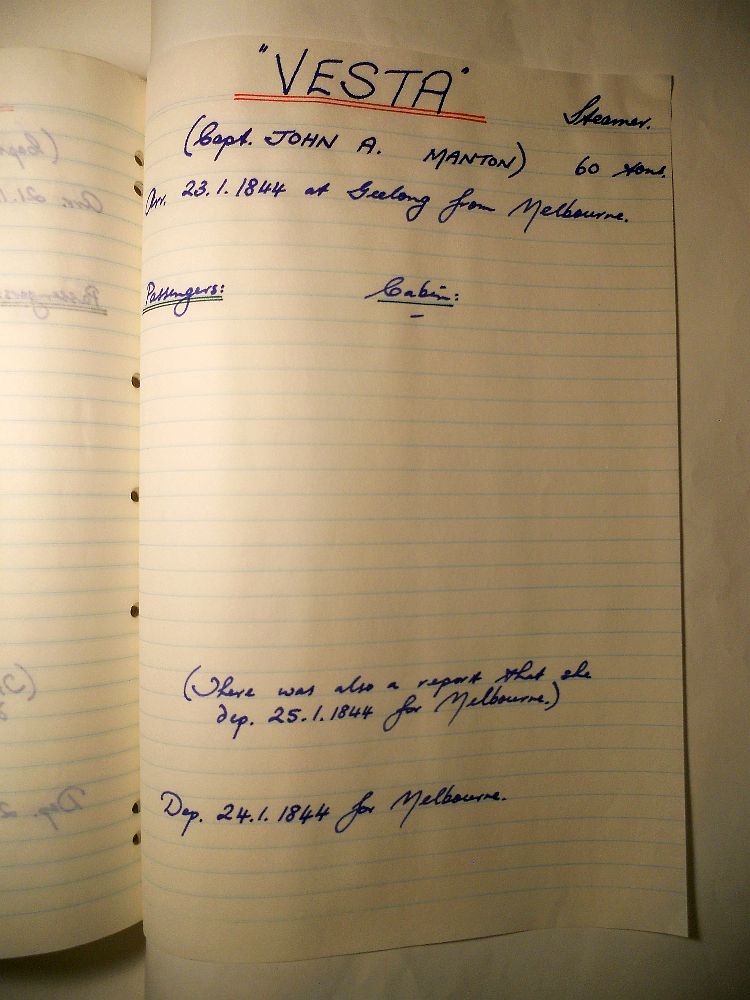 "VESTA"
Steamer.
(Capt. JOHN A. MANTON) 60 tons.
Arr. 23.1.1844 at Geelong from Melbourne.
Passengers: Cabin:
–
(There was also a report that she
dep. 25.1.1844 for Melbourne.)
Dep. 24.1.1844 for Melbourne.